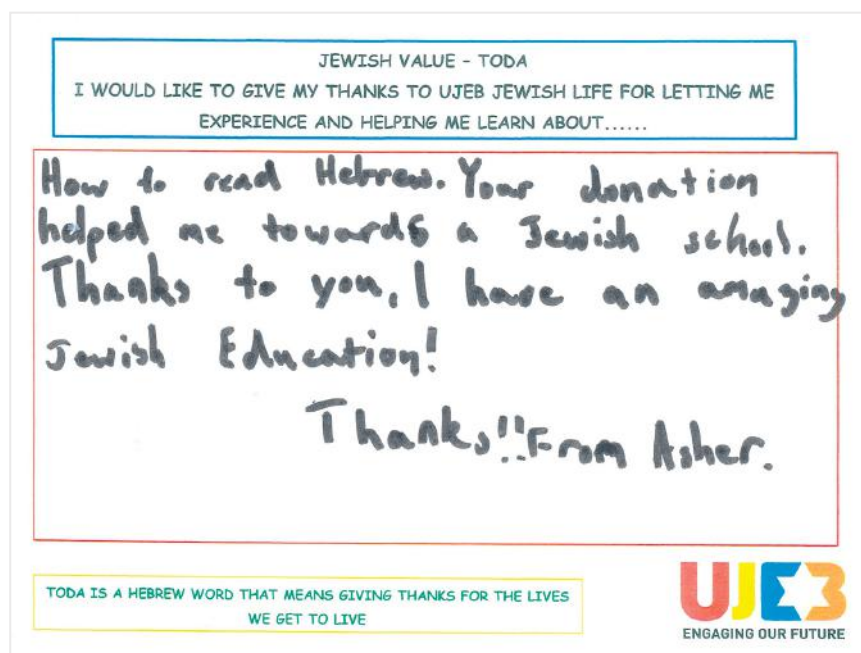 JEWISH VALUE - TODA
I WOULD LIKE TO GIVE MY THANKS TO UJEB JEWISH LIFE FOR LETTING ME
EXPERIENCE AND HELPING ME LEARN ABOUT......
How to read Hebrew. Your donation
helped me towards a Jewish school.
Thanks to you, I have an amazing
Jewish Education!
Thanks!! From Asher.
TODA IS A HEBREW WORD THAT MEANS GIVING THANKS FOR THE LIVES
WE GET TO LIVE
UJEB
ENGAGING OUR FUTURE